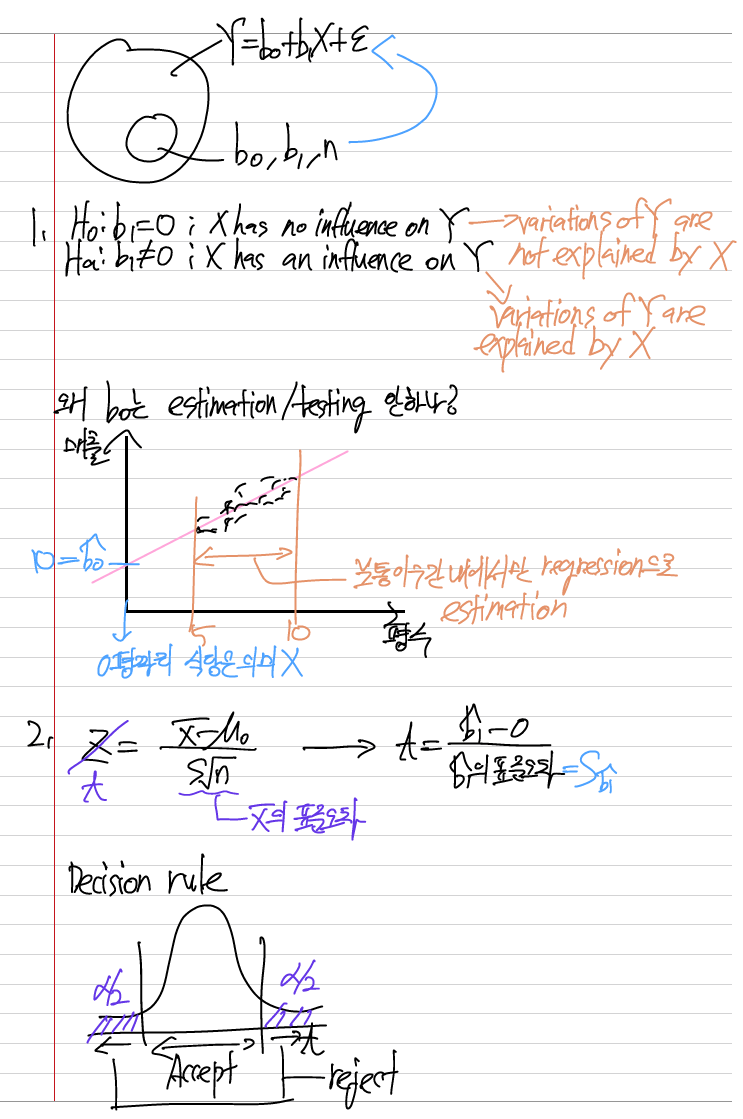 Y=b₀+b₁X+ε
b₀, b₁, n
1. H₀: b₁=0 ; X has no influence on Y → variations of Y are not explained by X
Ha: b₁≠0 ; X has an influence on Y
variations of Y are
explained by X
왜 b₀는 estimation/testing 안하나?
매출
10=b̂₀
보통 이구간 내에서만 regression으로
estimation
5 10
평수
0평짜리 식당은 의미 X
2. Z = x̄-μ₀ / S√n → t = b̂₁-0 / b̂₁의 표준오차 = S b̂₁
t
x̄의 표준오차
Decision rule
α/2 α/2
t
Accept
reject